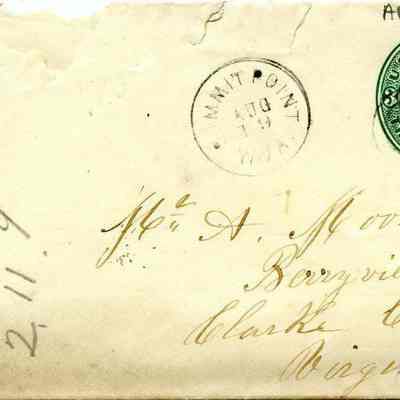 SUMMIT POINT
AUG
19
W.VA.
Mr. A. Moo
Berryvil
Clarke C
Virgin
2.11.9